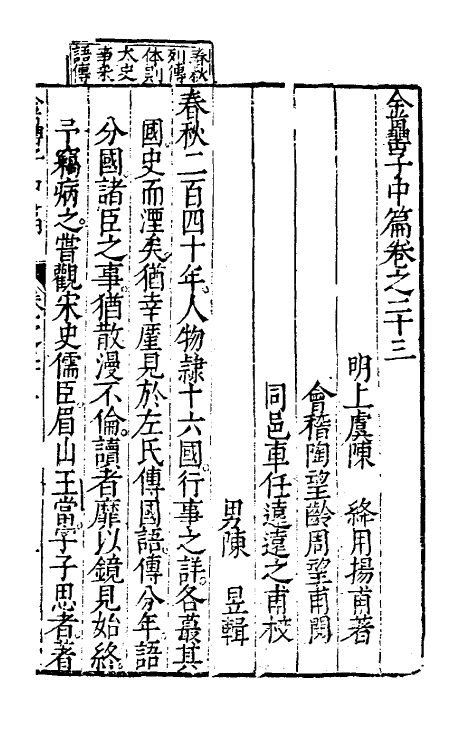 春秋
列傳
体則
太史
事采
語傳
金罍子中篇卷之二十三
明上虞陳 絳用揚甫著
會稽陶望齡周望甫閱
同邑車任遠遠之甫校
男陳 昱輯
春秋二百四十年人物隸十六國行事之詳各蕞其
國史而湮矣猶幸厪見於左氏傳國語傳分年語
分國諸臣之事猶散漫不倫讀者靡以鏡見始終
予竊病之嘗觀宋史儒臣眉山王當字子思者著